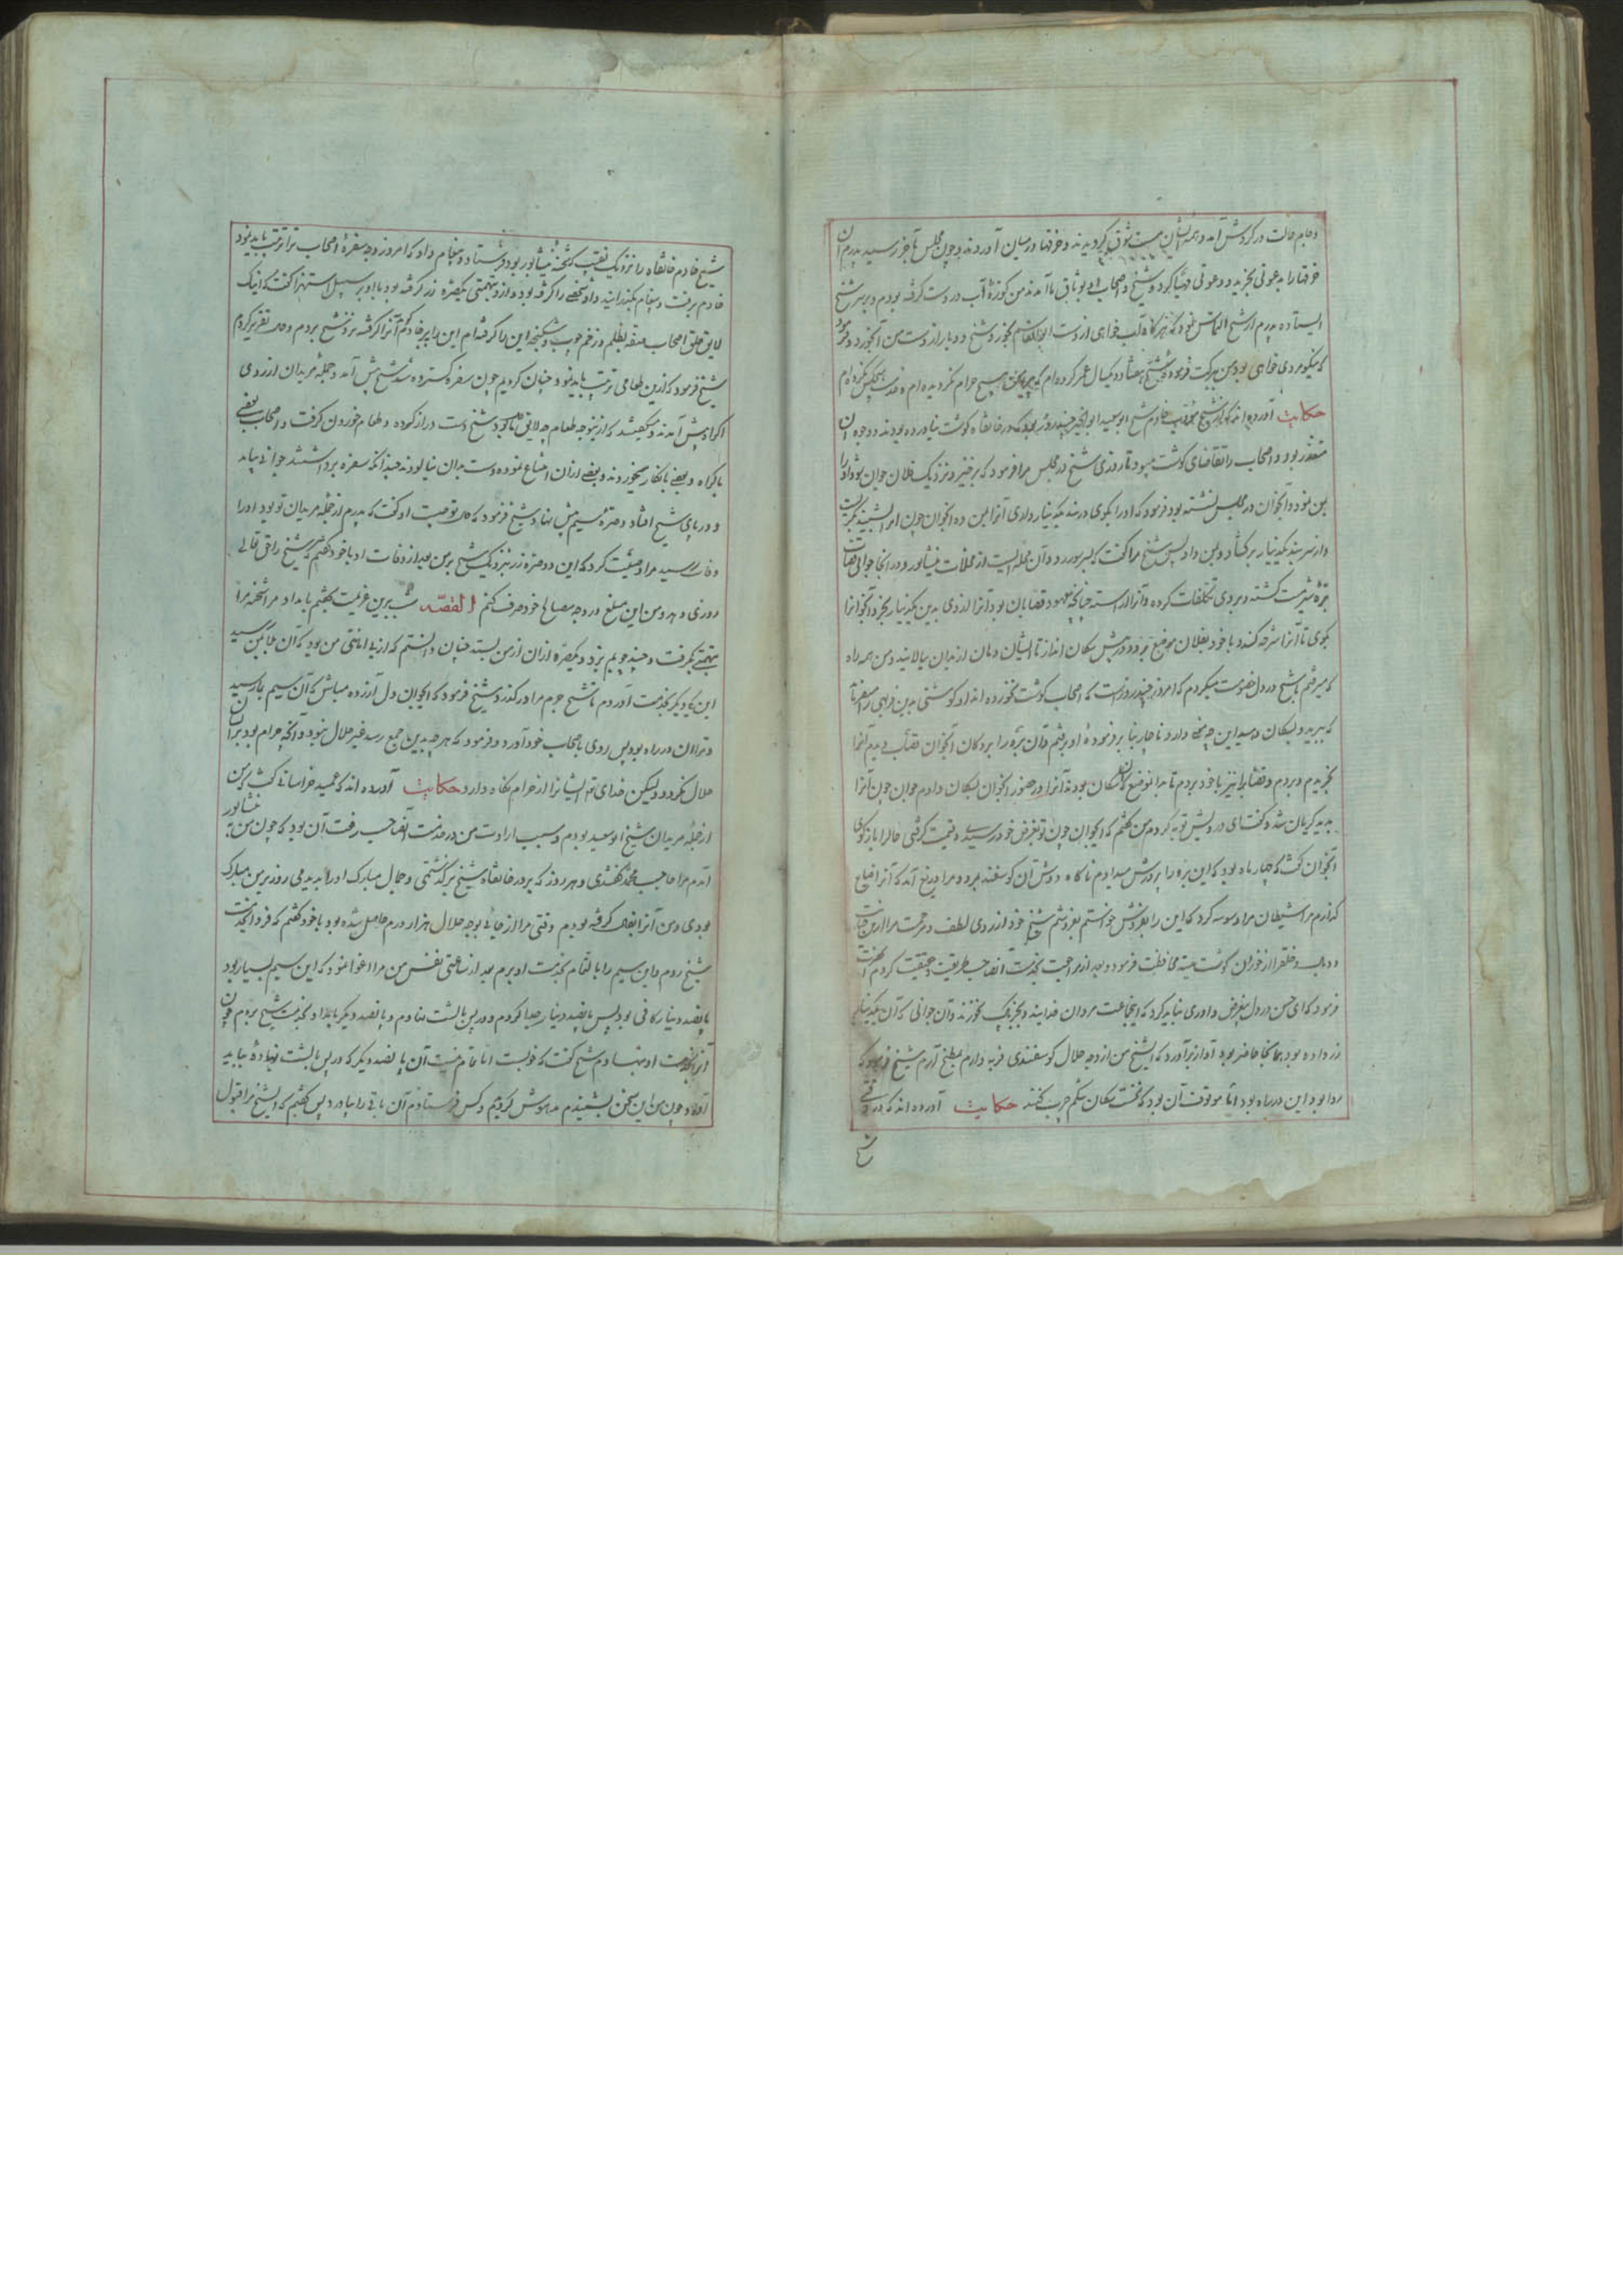 و جام حالت در گردش آمد و همه ایشان مست شوق گردیدند و خرقها در میان آوردند و چون مجلس بآخر رسید پدرم آن
خرقها را بدعوتی بخرید و دعوتی مهیا کرد و شیخ و اصحاب او بوثاق ما آمدند من کوزهٔ آب در دست گرفته بودم و بر سر شیخ
ایستاده پدرم از شیخ التماس نمود که هرگاه آب خواهی از دست ابوالقاسم بخور و شیخ دو بار از دست من آب خورد و فرمود
که نیکو مردی خواهی بود من ببرکت فرمودهٔ شیخ هفتاد و یکسال عمر کرده‌ام که پیرامن هیچ حرام نگردیده‌ام
حکایت آورده‌اند که خواجه حسن مؤدب خادم شیخ ابوسعید ابوالخیر چند روز بود که در خانقاه گوشت نیاورده بودند و وجه آن
متعذر بود و اصحاب را تقاضای گوشت میبود تا روزی شیخ در مجلس مرا فرمود که برخیز و نزدیک فلان جوان شو و او را
بمن نمود و آنجوان در مجلس نشسته بود فرمود که او را بگوی در بند یکدینار داری آنرا بمن ده آنجوان چون این بشنید بگریست
و از سر بند یکدینار برگشاد و بمن داد پس شیخ مرا گفت که بسر و آن محله ایست از محلات نیشابور و در آنجا جوانی قصاب
برهٔ شیرمست کشته و بر وی تکلفات کرده و آنرا آراسته چنانچه معهود قصابان بود آنرا از وی بدین یکدینار بخر و آنجوانرا
بگوی تا آنرا شرحه کند و با خود بفلان موضع برد و در پیش سگان انداز تا ایشان دهان از بدان بیالایند و من همه راه
که میرفتم با شیخ در دل خصومت میکردم که امروز چند روز است که اصحاب گوشت نخورده‌اند او گوشتی بدین فربهی را میفرماید
که ببرید و بسگان دهید این چه معنی دارد ناچار بنابر فرمودهٔ او برفتم و آن بره را بر دکان آنجوان قصاب بدیدم آنرا
بخریدم و ببردم و قصاب را نیز با خود بردم تا بدانموضع که سگان بودند آنرا در حضور آنجوان بسگان دادم جوان چون آنرا
بدید گریان شد و گفت ای درویش توبه کردم من گفتم که ای جوان چون تو بغرض خود رسیدی و قیمت گرفتی حال را باز گوی
آنجوان گفت که چهار ماه بود که این بره را پرورش میدادم ناگاه دوش آن گوسفند مرد و مرا دریغ آمد که آنرا ضایع
گذارم مرا شیطان مراد وسوسه کرد که این را بفروش خواستم بفروشم شیخ خود از روی لطف و مرحمت مرا از این خیانت
و وبال و خلق را از خوردن گوشت میته محافظت فرمود و بعد از مراجعت بخدمت آنصاحب طریقت و حقیقت کردم آنحضرت
فرمود که ای حسن در دل بیغرض داوری نباید کرد که اینجماعت مردان خدایند و بجز پاک نخورند و آن جوانی که آن یکدینار
زر داده بود همانجا حاضر بود آواز برآورد که ایشیخ من از وجه حلال گوسفندی فربه دارم بمطبخ آرم شیخ فرمود که
روا بود این در راه بود اما موقوف آن بود که نخست سگان شکم چرب کنند حکایت آورده‌اند که در وقتی
شیخ خادم خانقاه را نزدیک نقیب که شحنهٔ نیشابور بود فرستاد و پیغام داد که امروز وجه سفرهٔ اصحاب ترا ترتیب باید نمود
خادم برفت و پیغام بگذرانید و او شخصی را گرفته بود و از و بتهمتی یکصره زر گرفته بود با او بر سبیل استهزا گفت که اینک
لایق حلق اصحاب صفه بظلم و زخم چوب و شکنجه این را گرفته‌ام این را ببر خادم آنرا گرفته نزد شیخ بردم و حال تقریر کردم
شیخ فرمود که ازین طعامی ترتیب باید نمود چنان کردیم چون سفره گسترده شد شیخ پیش آمد و جمله مریدان از روی
اکراه پیش آمدند و میگفتند که از ینوجه طعام چه لایق ما بود شیخ دست دراز کرده و طعام خوردن گرفت و اصحاب بعضی
باکراه و بعضی بانکار میخوردند و بعضی از آن امتناع نموده دست بدان نیالودند چندانکه سفره برداشتند جوانی بیامد
و در پای شیخ افتاد و صرهٔ سیم پیش نهاد شیخ فرمود که حال تو چیست او گفت که پدرم از جمله مریدان تو بود او را
وفات رسید مرا وصیت کرد که این دو صره زر بنزدیک شیخ بر من بعد از وفات او با خود گفتم که شیخ را حق تعالی
روزی دهد و من این مبلغ در وجه مصالح خود صرف کنم القصه شب برین عزیمت گشتم بامداد مرا شحنه مرا
بتهمتی بگرفت و چند چوبم بزد و یکصره از آن از من بستد چنان دانستم که از بی امانتی من بود که آن بلا بمن رسید
این یکدیگر بخدمت آوردم تا شیخ جرم مرا درگذرد شیخ فرمود که ایجوان دل آزرده مباش که آن سیم بما رسید
و ترا آن در راه بود پس روی باصحاب خود آورد و فرمود که هر چه بدین جمع رسد غیر حلال نبود و آنچه حرام بود بر آن
حلال نگردد ولیکن خدای تعالی ایشانرا از حرام نگاه دارد حکایت آورده‌اند که عمید خراسانی گفت که من
از جمله مریدان شیخ ابوسعید بودم و سبب ارادت من در خدمت آنصاحب معرفت آن بود که چون من به نیشابور
آمدم مرا حاجب محمد گفتندی و هر روز که بر در خانقاه شیخ برگذشتمی و جمال مبارک او را بدیدمی روز بر من مبارک
بودی و من آنرا بفال گرفته بودم وقتی مرا از جائی بوجه حلال هزار درم حاصل شده بود با خود گفتم که فردا بخدمت
شیخ روم و این سیم را بالتمام بخدمت او برم بعد از ساعتی نفس من مرا اغوا نمود که این سیم بسیار بود
پانصد دینار کافی بود پس پانصد دینار جدا کردم و در پس بالشت نهادم و پانصد دیگر بامداد بخدمت شیخ بردم چون
آنرا بخدمت او نهادم شیخ گفت که خوبست اما تمام نیست آن پانصد دیگر که در پس بالشت نهادهٔ بباید
آورد چون من این سخن بشنیدم مدهوش گردیدم و کس فرستادم آن باقی را بیاورد پس گفتم که ایشیخ مرا قبول